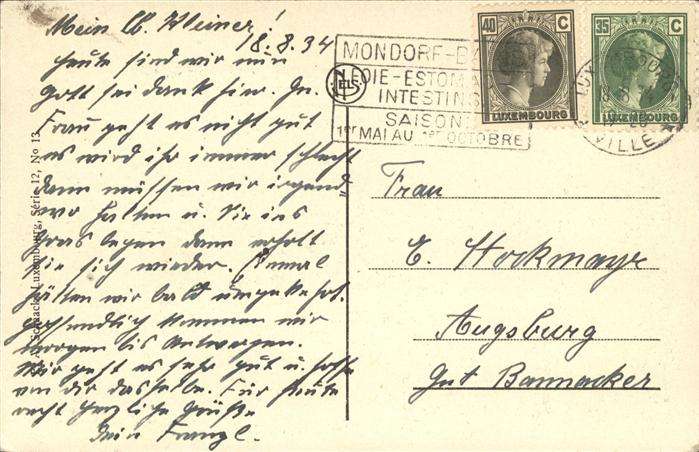 Mein lb. Kleiner!
18.8.34
heute sind wir nun
Gott sei dank hier. Gn.
Frau geht es nicht gut
es wird ihr immer schlecht
dann müssen wir irgend
wo halten u. Sie ins
Gras legen dann erholt
Sie sich wieder. Einmal
hätten wir bald umgekehrt.
Hoffendlich kommen wir
morgen bis Antwerpen.
Mir geht es sehr gut u. hoffe
von dir dasselbe. Für heute
recht herzliche Grüße
Dein Franzl.
A. Schaack, Luxembourg, Série 12, No 13
NELS
MONDORF-
FOIE-ESTOMA
INTESTINS
SAISON
1er MAI AU 1er OCTOBRE
40 C
LUXEMBOURG
35 C
LUXEMBOURG
LUXEMBOURG
VILLE
Frau
E. Hockmayr
Augsburg
Gut Bannacker